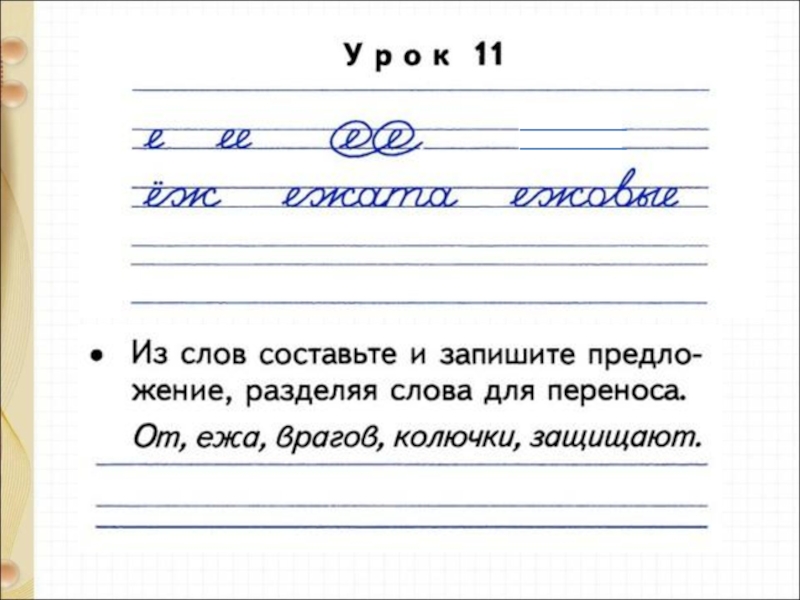 Урок 11
е ее ее
ёж ежата ежовые
• Из слов составьте и запишите предло-
жение, разделяя слова для переноса.
От, ежа, врагов, колючки, защищают.